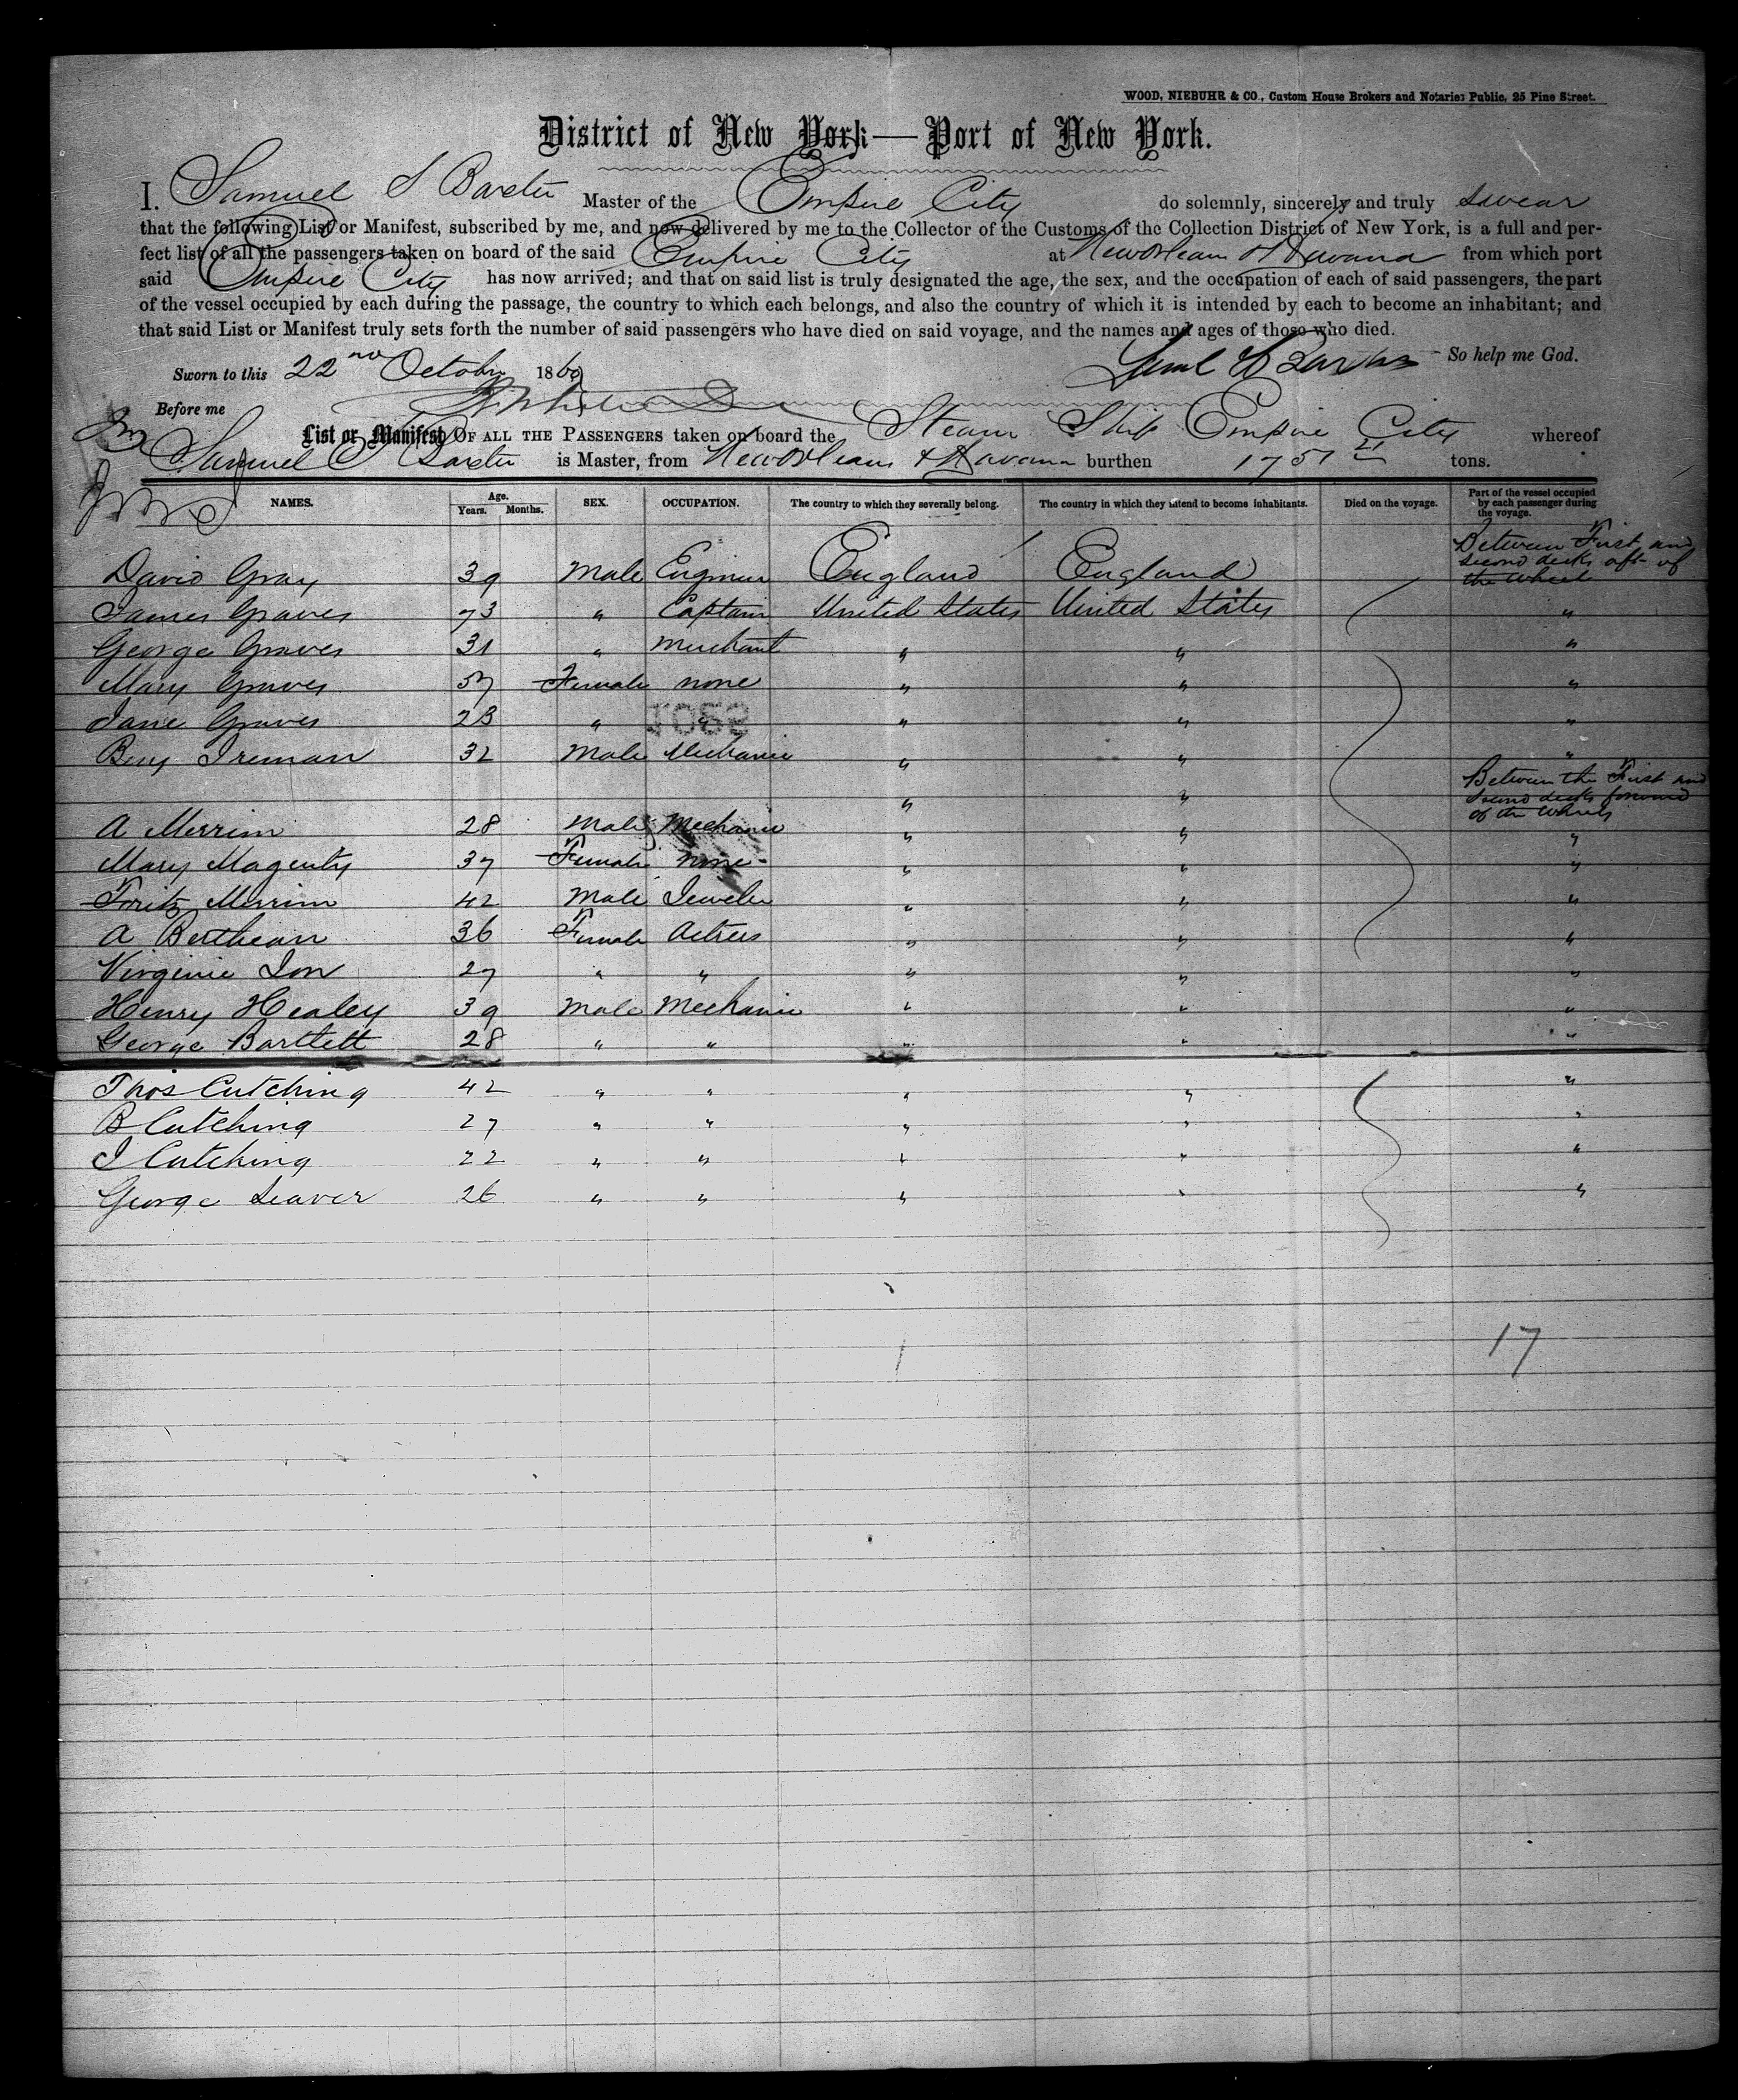 WOOD, NIEBUHR & CO., Custom House Brokers and Notaries Public, 25 Pine Street.
District of New York—Port of New York.
I. Samuel S Baxter Master of the Empire City do solemnly, sincerely and truly swear
that the following List or Manifest, subscribed by me, and now delivered by me to the Collector of the Customs of the Collection District of New York, is a full and per-
fect list of all the passengers taken on board of the said Empire City at New Orleans & Havana from which port
said Empire City has now arrived; and that on said list is truly designated the age, the sex, and the occupation of each of said passengers, the part
of the vessel occupied by each during the passage, the country to which each belongs, and also the country of which it is intended by each to become an inhabitant; and
that said List or Manifest truly sets forth the number of said passengers who have died on said voyage, and the names and ages of those who died.
So help me God.
Sworn to this 22nd October 1860
Before me
List or Manifest OF ALL THE PASSENGERS taken on board the Steam Ship Empire City whereof
Samuel S Baxter is Master, from New Orleans & Havana burthen 1751 21 tons.
NAMES. Age. Years. Months. SEX. OCCUPATION. The country to which they severally belong. The country in which they intend to become inhabitants. Died on the voyage. Part of the vessel occupied by each passenger during the voyage.
David Gray 39 Male Engineer England England Between First and second decks aft of the wheel
James Graves 73 " Captain United States United States "
George Graves 31 " Merchant " " "
Mary Graves 57 Female none " " "
Jane Graves 23 " " " " "
Benj Ireman 32 Male Mechanic " " "
" " Between the First and second decks forward of the wheels
A Merrim 28 Male Mechanic " " "
Mary Magenty 37 Female none " " "
Fritz Merrim 42 Male Jeweler " " "
A Berthean 36 Female Actress " " "
Virginie Ion 27 " " " " "
Henry Healey 39 Male Mechanic " " "
George Bartlett 28 " " " " "
Thos Cutching 42 " " " " "
B Cutching 27 " " " " "
I Cutching 22 " " " " "
George Seaver 26 " " " " "
17